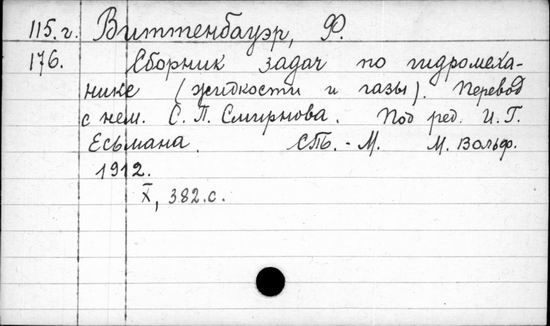 115.г. Виттенбауэр, Ф.
176. Сборник задач по гидромеха-
нике (жидкости и газы). Перевод
с нем. С. П. Смирнова. Под ред. И. Г.
Есьмана. СПб.-М. М. Вольф.
1912.
X, 382.с.